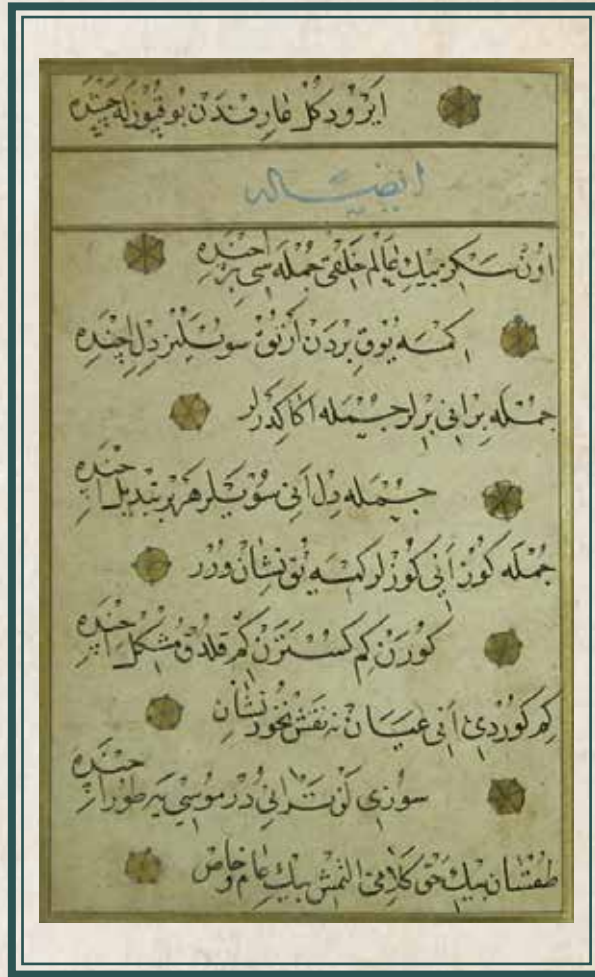 ايضا له
اون سكز بيك عالم خلقى جمله سى بر ايچنده
كمسه يوق بردن ارتوق سويلنر دل ايچنده
جمله بر انى برلر جمله اكا كدرلر
جمله دل انى سويلر هر بر تبديل ايچنده
جمله كوز انى كوزلر كمسه يوق نشان ورر
كورن كم كسترن كم قلدق مشكل ايچنده
كم كوردى انى عيان نه نقش نخود نشان
سوزى لن ترانى در موسى يه طور ايچنده
طقسان بيك حق كلامى التمش بيك عام و خاص